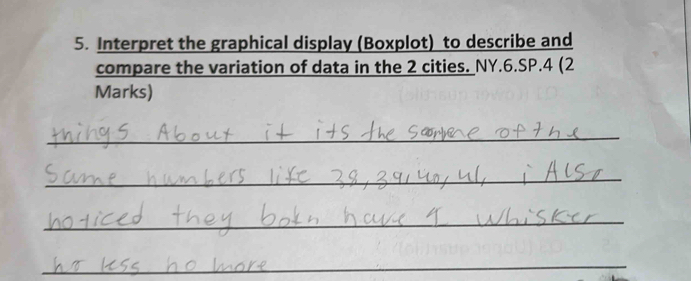 5. Interpret the graphical display (Boxplot) to describe and
compare the variation of data in the 2 cities. NY.6.SP.4 (2
Marks)
things About it its the of the
same numbers like 38, 39, 40, 41, i Also
noticed they both have 1 whisker
no less no more